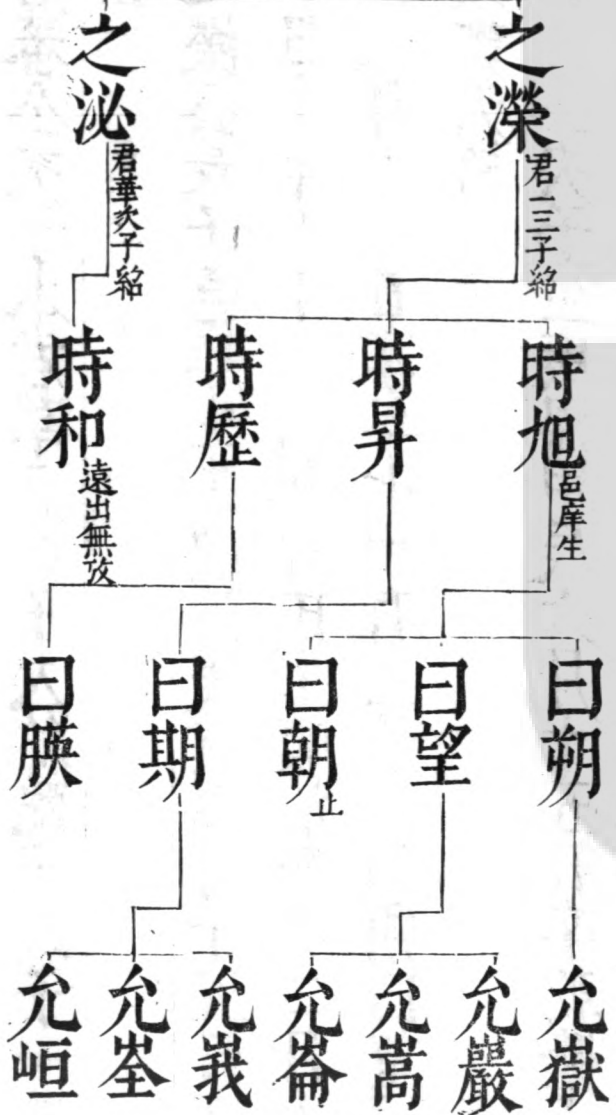 之濚 君一三子紹
之泌 君華次子紹
時旭 邑庠生
時昇
時歷
時和 遠出無攷
曰朔
曰望
曰朝 止
曰期
曰朠
允嶽
允巖
允嵩
允崙
允峩
允峑
允峘